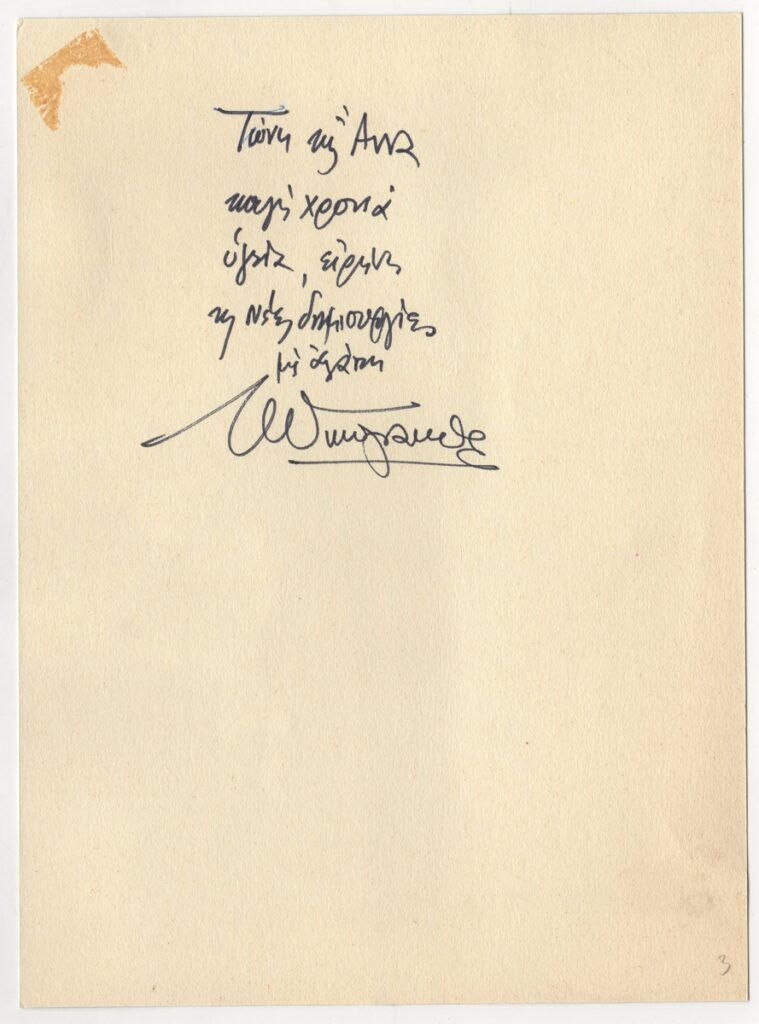 Τώνη κ̀ Ἄννα
καλή χρονιά
ὑγεία, εἰρήνη
κ̀ νέες δημιουργίες
μέ ἀγάπη
3